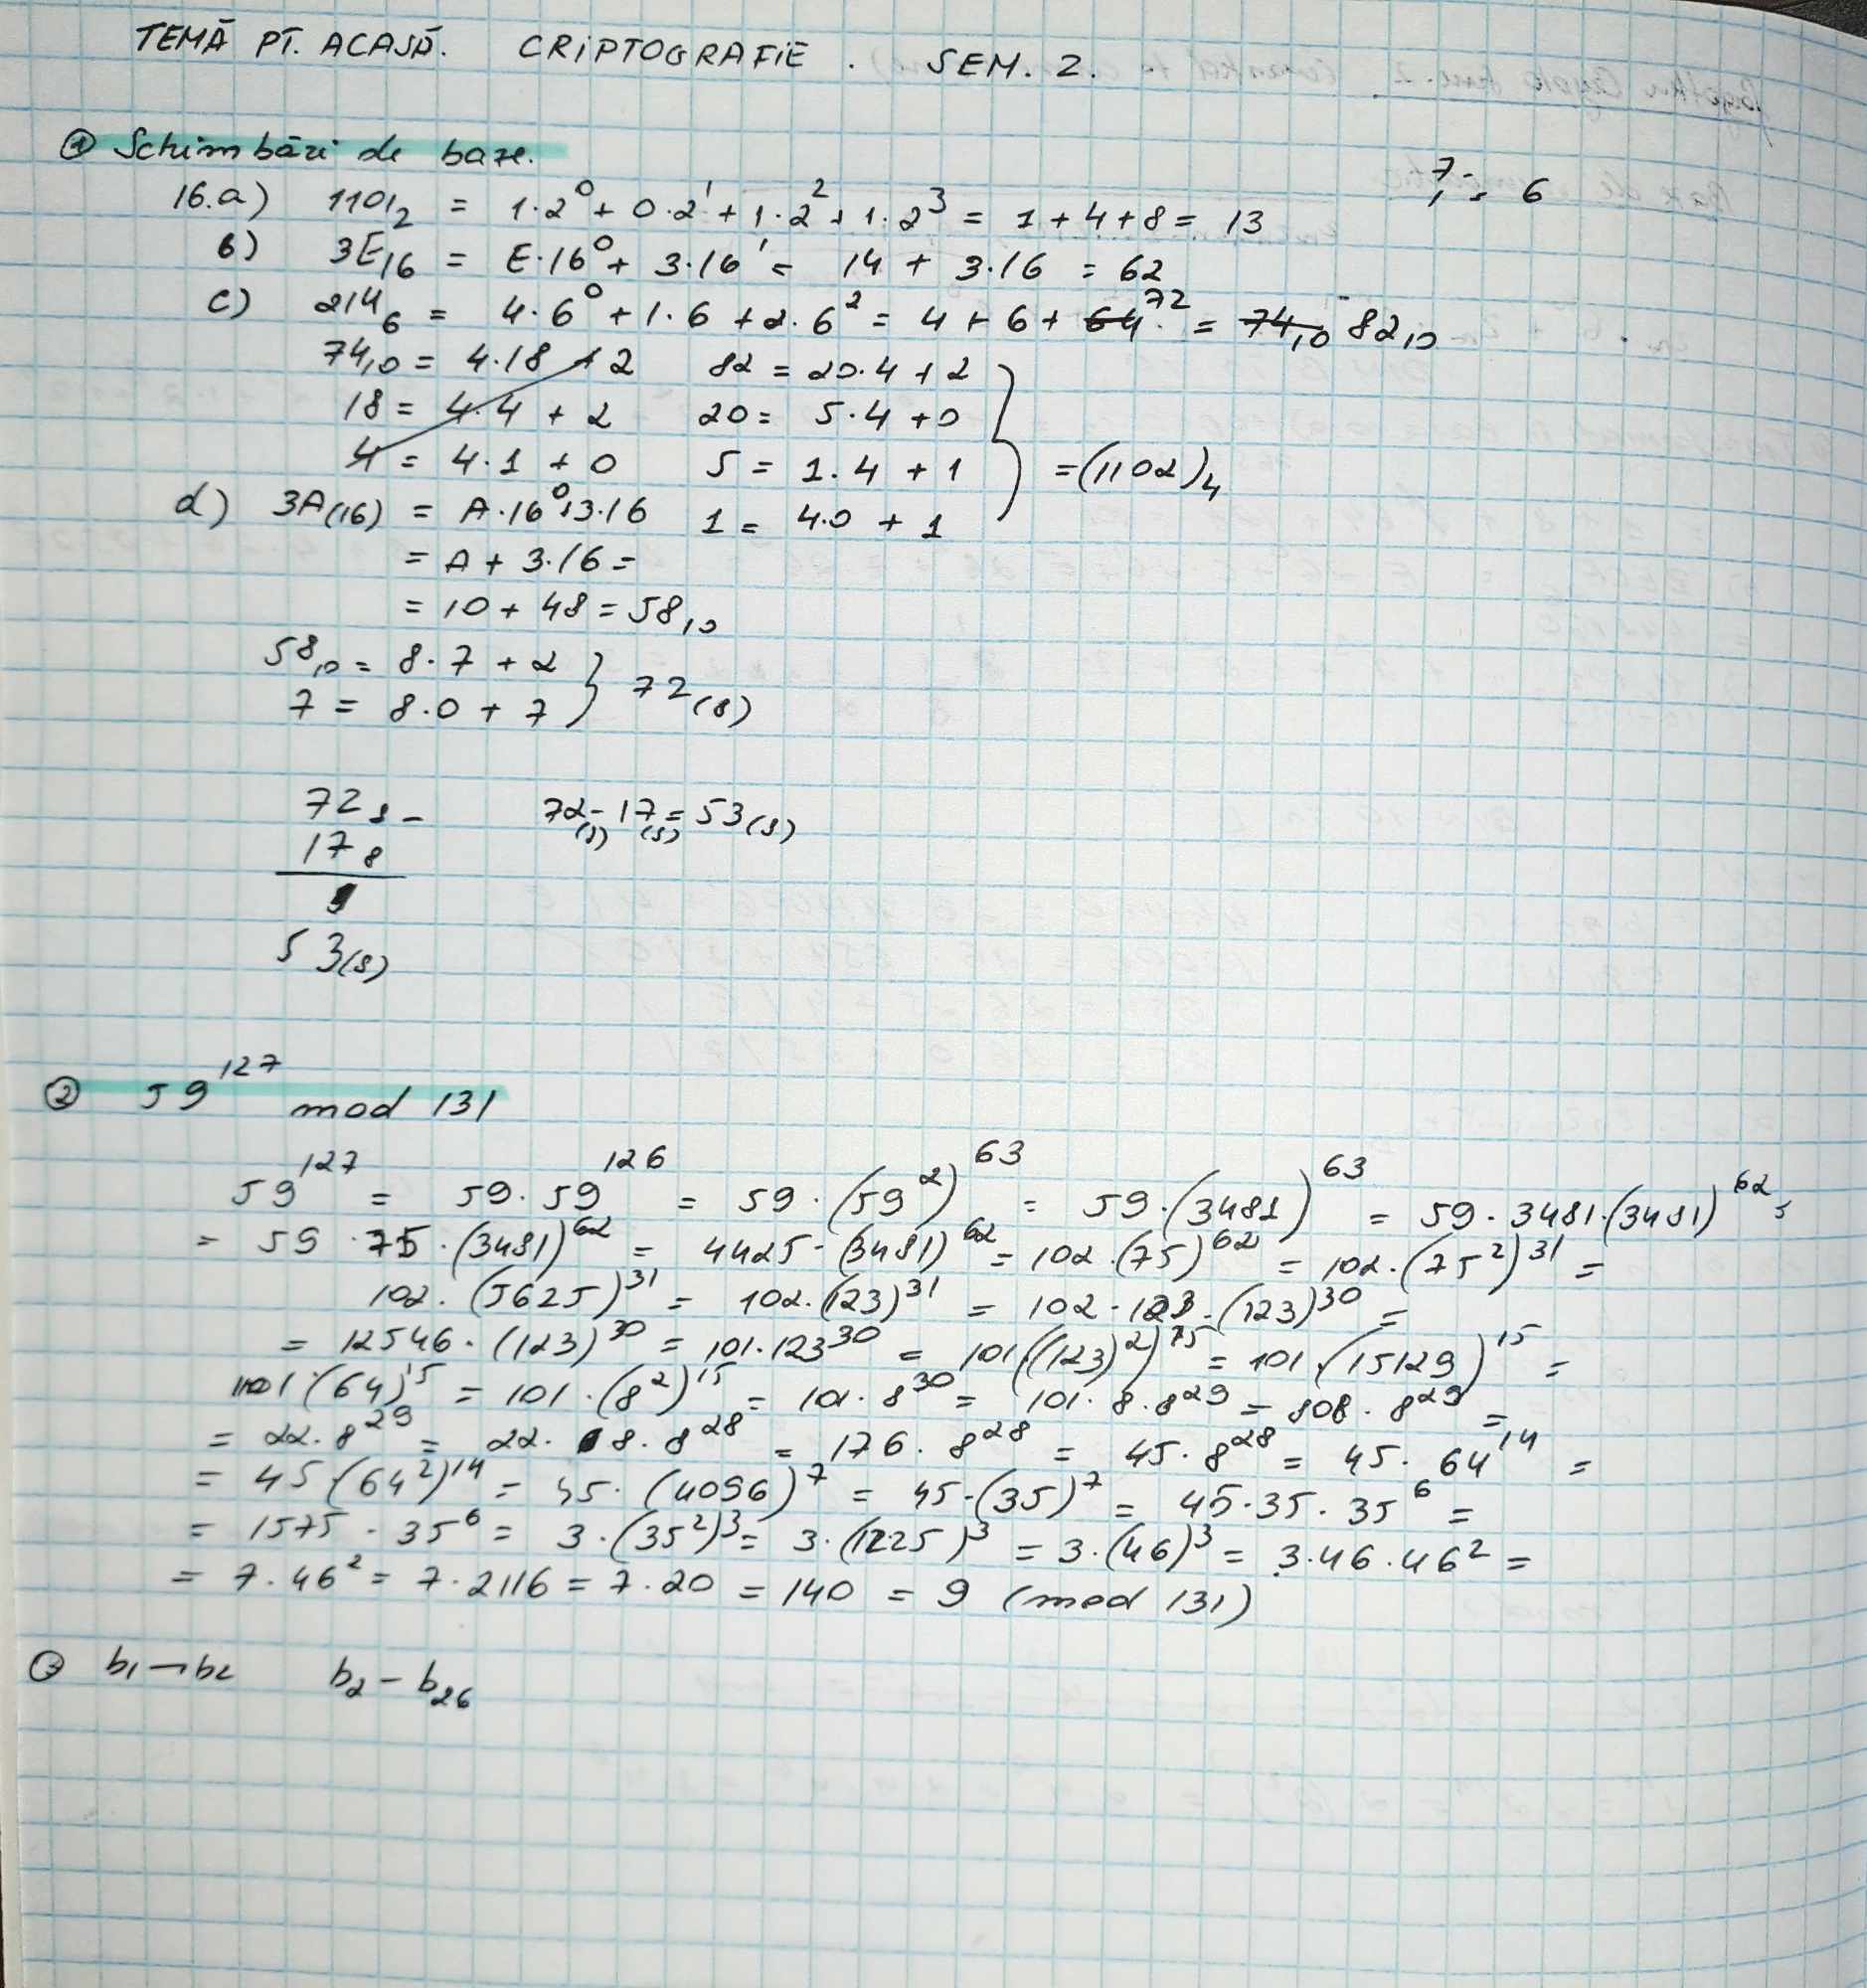 TEMĂ PT. ACASĂ. CRIPTOGRAFIE. SEM. 2.
① Schimbări de baze.
16.a) 1101₂ = 1·2⁰ + 0·2¹ + 1·2² + 1·2³ = 1 + 4 + 8 = 13
b) 3E₁₆ = E·16⁰ + 3·16¹ = 14 + 3·16 = 62
c) 214₆ = 4·6⁰ + 1·6 + 2·6² = 4 + 6 + 64 72 = 74₁₀ 82₁₀
74₁₀ = 4·18 + 2 82 = 20·4 + 2
18 = 4·4 + 2 20 = 5·4 + 0
4 = 4·1 + 0 5 = 1·4 + 1 = (1102)₄
d) 3A(16) = A·16⁰+3·16 1 = 4·0 + 1
= A + 3·16 =
= 10 + 48 = 58₁₀
58₁₀ = 8·7 + 2
7 = 8·0 + 7 } 72(8)
72₈ - 72(8) - 17(8) = 53(8)
17₈
53(8)
② 59¹²⁷ mod 131
59¹²⁷ = 59·59¹²⁶ = 59·(59²)⁶³ = 59·(3481)⁶³ = 59·3481·(3481)⁶² =
= 59·75·(3481)⁶² = 4425·(3481)⁶² = 102·(75)⁶² = 102·(75²)³¹ =
102·(5625)³¹ = 102·(123)³¹ = 102·123·(123)³⁰ =
= 12546·(123)³⁰ = 101·123³⁰ = 101·((123)²)¹⁵ = 101·(15129)¹⁵ =
101·(64)¹⁵ = 101·(8²)¹⁵ = 101·8³⁰ = 101·8·8²⁹ = 808·8²⁹ =
= 22·8²⁹ = 22·8·8²⁸ = 176·8²⁸ = 45·8²⁸ = 45·64¹⁴ =
= 45·(64²)¹⁴ = 45·(4096)⁷ = 45·(35)⁷ = 45·35·35⁶ =
= 1575·35⁶ = 3·(35²)³ = 3·(1225)³ = 3·(46)³ = 3·46·46² =
= 7·46² = 7·2116 = 7·20 = 140 = 9 (mod 131)
③ b₁→b₂ b₂ - b₂₆